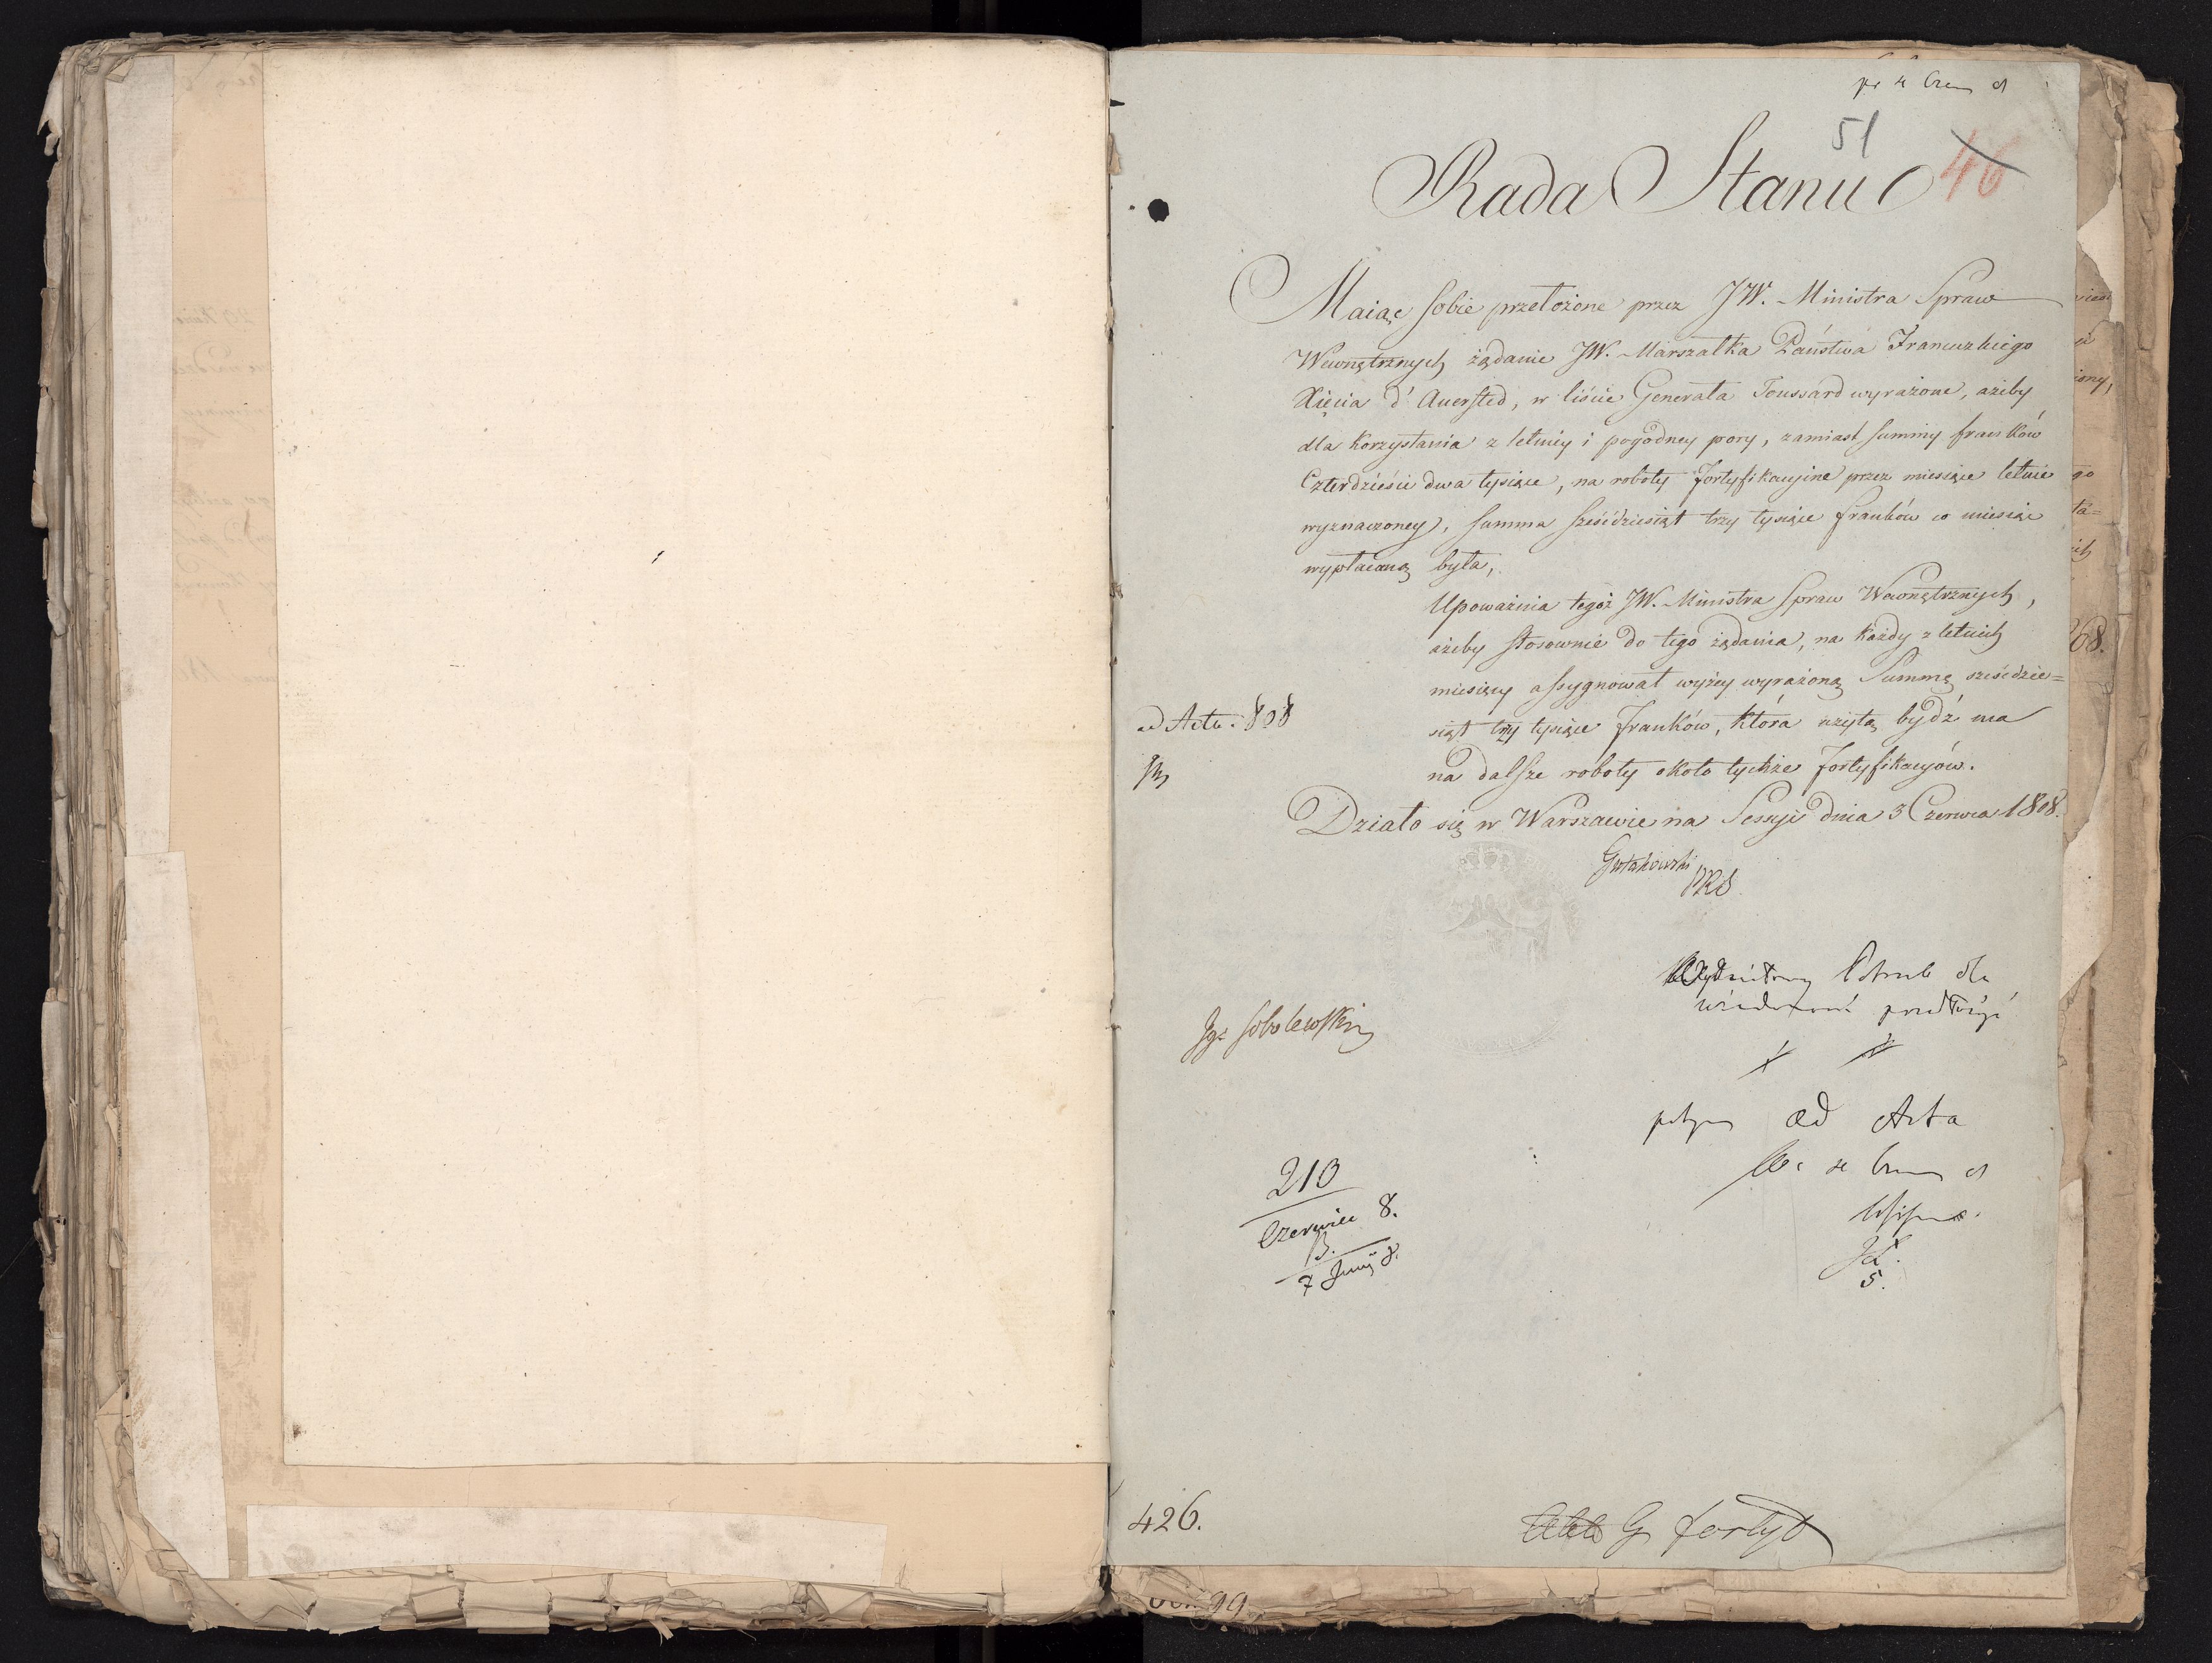 51
46
Rada Stanu
Maiąc sobie przełożone przez JW. Ministra Spraw
Wewnętrznych żądanie JW. Marszałka Państwa Francuzkiego
Xięcia d'Auersted, w liście Generała Toussard wyrażone, ażeby
dla korzystania z letniey i pogodney pory, zamiast summy franków
Czterdzieście dwa tysiące, na roboty fortyfikacyine przez miesiące letnie
wyznaczoney, summa sześćdziesiąt trzy tysiące franków co miesiąc
wypłacaną była,
Upoważnia tegoż JW. Ministra Spraw Wewnętrznych,
ażeby stosownie do tego żądania, na każdy z letnich
miesięcy assygnował wyżey wyrażoną Summę sześćdzie=
siąt trzy tysiące franków, która użytą bydź ma
na dalsze roboty około tychże fortyfikacyów.
Działo się w Warszawie na Sessyi dnia 3 Czerwca 1808.
Gutakowski
PRS
ad Acta. 808
Ig: Sobolewski
dla
przedłożyć
ad Acta
210
Czerwiec 8.
7 Juny 8.
5.
426.
G fortyf